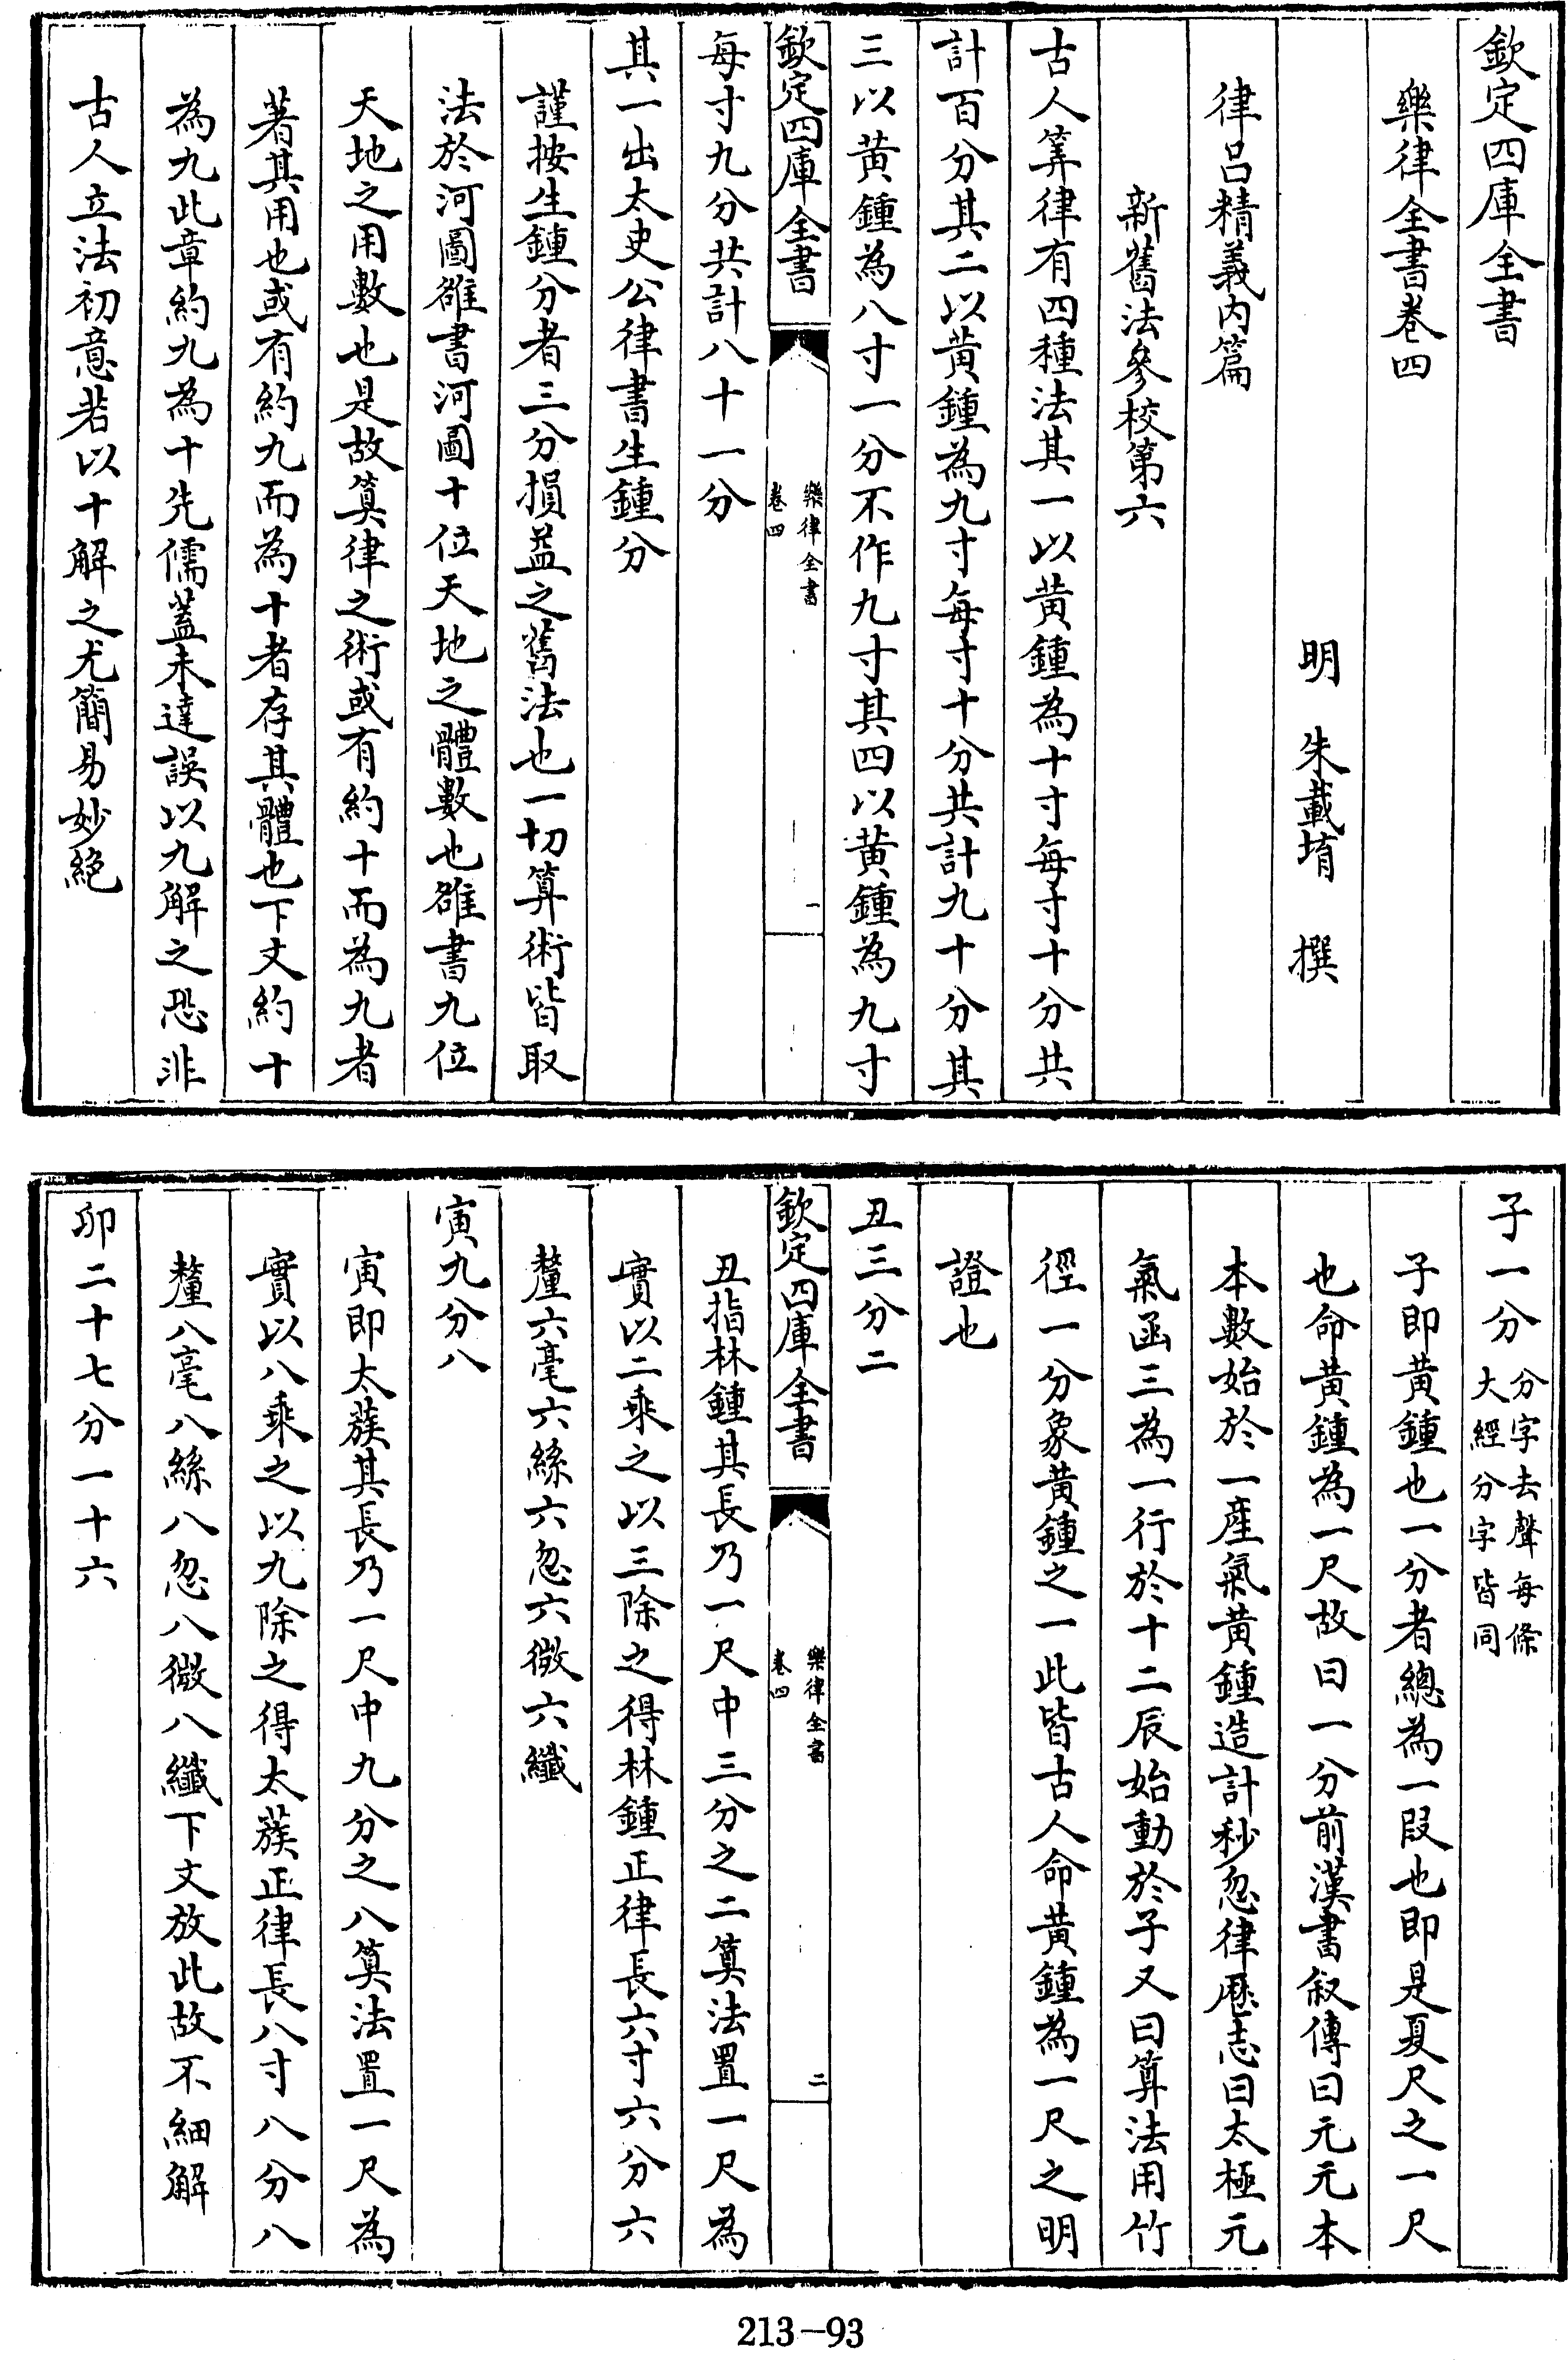 欽定四庫全書
樂律全書卷四
明 朱載堉 撰
律呂精義內篇
新舊法參校第六
古人筭律有四種法其一以黃鍾為十寸每寸十分共
計百分其二以黃鍾為九寸每寸十分共計九十分其
三以黃鍾為八寸一分不作九寸其四以黃鍾為九寸
欽定四庫全書
樂律全書
卷四
一
每寸九分共計八十一分
其一出太史公律書生鍾分
謹按生鍾分者三分損益之舊法也一切算術皆取
法於河圖雒書河圖十位天地之體數也雒書九位
天地之用數也是故筭律之術或有約十而為九者
著其用也或有約九而為十者存其體也下文約十
為九此章約九為十先儒蓋未達誤以九解之恐非
古人立法初意若以十解之尤簡易妙絶
子一分
分字去聲每條
大經分字皆同
子即黃鍾也一分者總為一段也即是夏尺之一尺
也命黃鍾為一尺故曰一分前漢書叙傳曰元元本
本數始於一產氣黃鍾造計秒忽律厯志曰太極元
氣函三為一行於十二辰始動於子又曰算法用竹
徑一分象黃鍾之一此皆古人命黃鍾為一尺之明
證也
丑三分二
欽定四庫全書
樂律全書
卷四
二
丑指林鍾其長乃一尺中三分之二筭法置一尺為
實以二乘之以三除之得林鍾正律長六寸六分六
釐六毫六絲六忽六微六纖
寅九分八
寅即太蔟其長乃一尺中九分之八筭法置一尺為
實以八乘之以九除之得太蔟正律長八寸八分八
釐八毫八絲八忽八微八纖下文放此故不細解
卯二十七分一十六
213-93